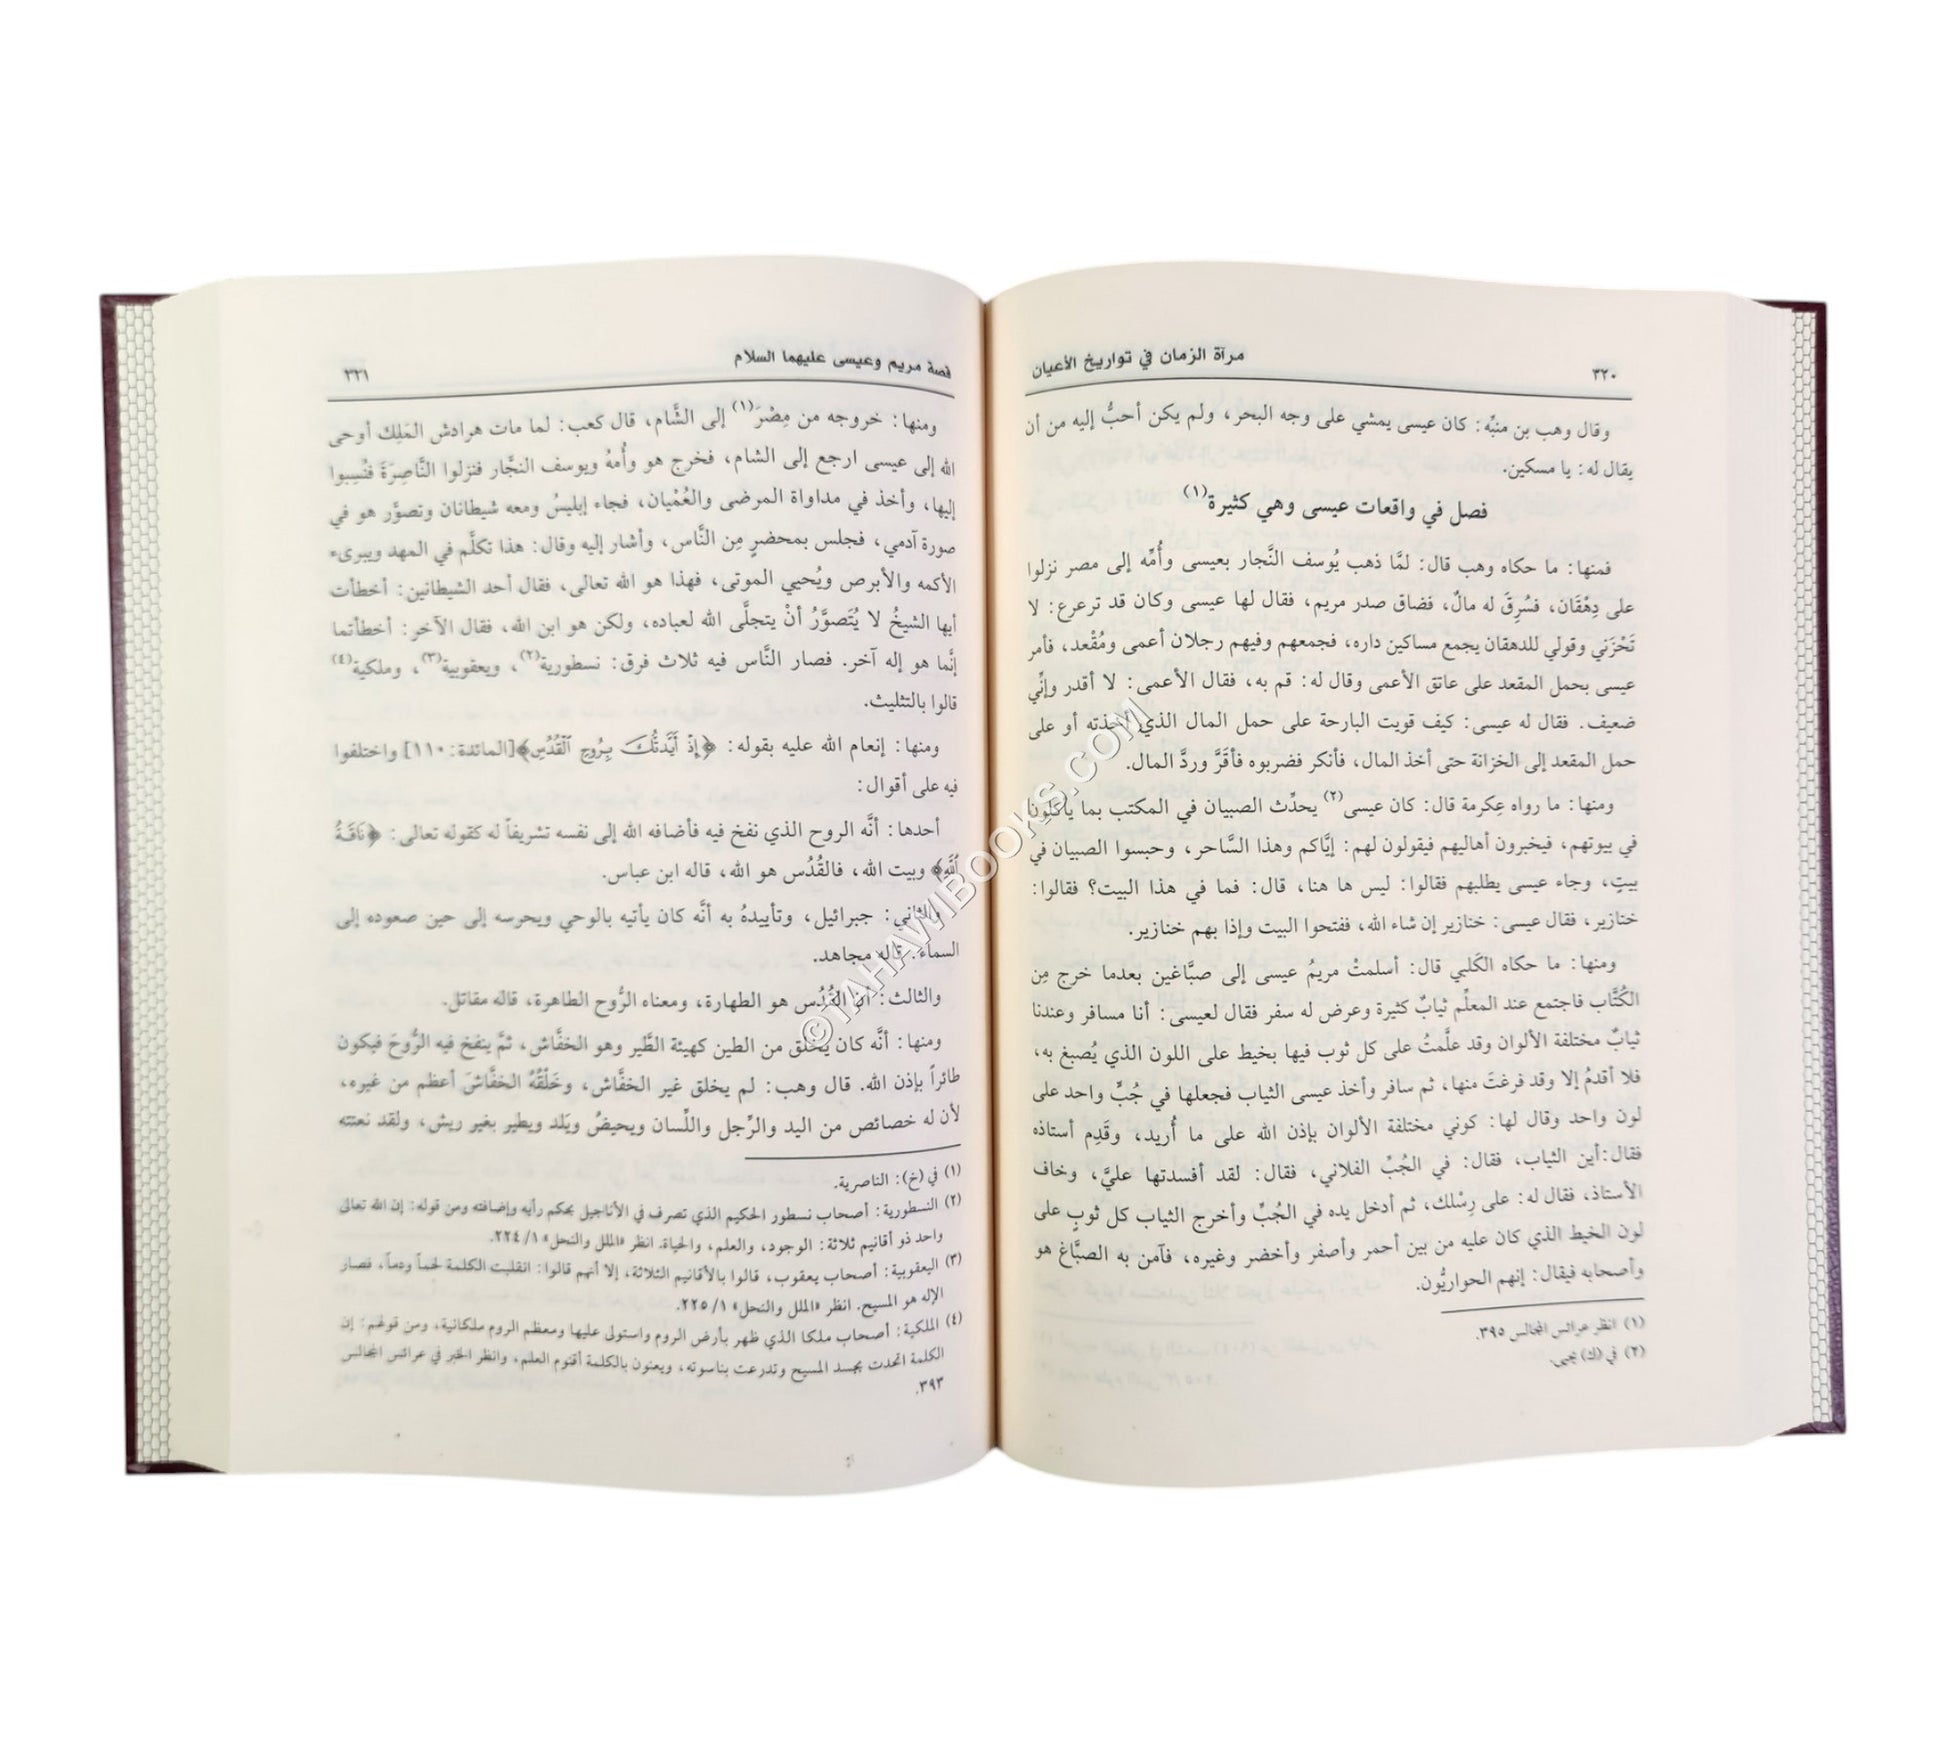 ٣٢٠
مرآة الزمان في تواريخ الأعيان
وقال وهب بن منبِّه: كان عيسى يمشي على وجه البحر، ولم يكن أحبُّ إليه من أن
يقال له: يا مسكين.
فصل في واقعات عيسى وهي كثيرة(١)
فمنها: ما حكاه وهب قال: لمَّا ذهب يُوسف النَّجار بعيسى وأُمِّه إلى مصر نزلوا
على دِهْقَان، فسُرِقَ له مالٌ، فضاق صدر مريم، فقال لها عيسى وكان قد ترعرع: لا
تَحْزَني وقولي للدهقان يجمع مساكين داره، فجمعهم وفيهم رجلان أعمى ومُقْعد، فأمر
عيسى بحمل المقعد على عاتق الأعمى وقال له: قم به، فقال الأعمى: لا أقدر وإنِّي
ضعيف. فقال له عيسى: كيف قويت البارحة على حمل المال الذي أخذته أو على
حمل المقعد إلى الخزانة حتى أخذ المال، فأنكر فضربوه فأقَرَّ وردَّ المال.
ومنها: ما رواه عِكرمة قال: كان عيسى(٢) يحدِّث الصبيان في المكتب بما يأكلون
في بيوتهم، فيخبرون أهاليهم فيقولون لهم: إيَّاكم وهذا السَّاحر، وحبسوا الصبيان في
بيتٍ، وجاء عيسى يطلبهم فقالوا: ليس ها هنا، قال: فما في هذا البيت؟ فقالوا:
خنازير، فقال عيسى: خنازير إن شاء الله، ففتحوا البيت وإذا بهم خنازير.
ومنها: ما حكاه الكَلبي قال: أسلمتْ مريمُ عيسى إلى صبَّاغين بعدما خرج مِن
الكُتَّاب فاجتمع عند المعلِّم ثيابٌ كثيرة وعرض له سفر فقال لعيسى: أنا مسافر وعندنا
ثيابٌ مختلفة الألوان وقد علَّمتُ على كل ثوب فيها بخيط على اللون الذي يُصبغ به،
فلا أقدمُ إلا وقد فرغتَ منها، ثم سافر وأخذ عيسى الثياب فجعلها في جُبٍّ واحد على
لون واحد وقال لها: كوني مختلفة الألوان بإذن الله على ما أُريد، وقَدِم أستاذه
فقال:أين الثياب، فقال: في الجُبِّ الفلاني، فقال: لقد أفسدتها عليَّ، وخاف
الأستاذ، فقال له: على رِسْلك، ثم أدخل يده في الجُبِّ وأخرج الثياب كل ثوبٍ على
لون الخيط الذي كان عليه من بين أحمر وأصفر وأخضر وغيره، فآمن به الصبَّاغ هو
وأصحابه فيقال: إنهم الحواريُّون.
(١) انظر عرائس المجالس ٣٩٥.
(٢) في (ك) يحيى.
قصة مريم وعيسى عليهما السلام
٣٢١
ومنها: خروجه من مِصْرَ(١) إلى الشَّام، قال كعب: لما مات هرادش المَلِك أوحى
الله إلى عيسى ارجع إلى الشام، فخرج هو وأُمهُ ويوسف النجَّار فنزلوا النَّاصِرَةَ فنُسِبوا
إليها، وأخذ في مداواة المرضى والعُمْيان، فجاء إبليسُ ومعه شيطانان وتصوَّر هو في
صورة آدمي، فجلس بمحضرٍ مِن النَّاس، وأشار إليه وقال: هذا تكلَّم في المهد ويبرىء
الأكمه والأبرص ويُحيي الموتى، فهذا هو الله تعالى، فقال أحد الشيطانين: أخطأت
أيها الشيخُ لا يُتَصوَّرُ أنْ يتجلَّى الله لعباده، ولكن هو ابن الله، فقال الآخر: أخطأتما
إنَّما هو إله آخر. فصار النَّاس فيه ثلاث فرق: نسطورية(٢)، ويعقوبية(٣)، وملكية(٤)
قالوا بالتثليث.
ومنها: إنعام الله عليه بقوله: ﴿إِذْ أَيَّدتُّكَ بِرُوحِ ٱلْقُدُسِ﴾[المائدة: ١١٠] واختلفوا
فيه على أقوال:
أحدها: أنَّه الروح الذي نفخ فيه فأضافه الله إلى نفسه تشريفاً له كقوله تعالى: ﴿نَاقَةُ
ٱللَّهِ﴾ وبيت الله، فالقُدُس هو الله، قاله ابن عباس.
والثاني: جبرائيل، وتأييدهُ به أنَّه كان يأتيه بالوحي ويحرسه إلى حين صعوده إلى
السماء. قاله مجاهد.
والثالث: أنَّ القُدُس هو الطهارة، ومعناه الرُّوح الطاهرة، قاله مقاتل.
ومنها: أنَّه كان يَخلُق من الطين كهيئة الطَّير وهو الخفَّاش، ثمَّ ينفخ فيه الرُّوحَ فيكون
طائراً بإذن الله. قال وهب: لم يخلق غير الخفَّاش، وخَلْقُهُ الخفَّاشَ أعظم من غيره،
لأن له خصائص من اليد والرِّجل واللِّسان ويحيضُ ويَلد ويطير بغير ريش، ولقد نعتته
(١) في (خ): الناصرية.
(٢) النسطورية: أصحاب نسطور الحكيم الذي تصرف في الأناجيل بحكم رأيه وإضافته ومن قوله: إن الله تعالى
واحد ذو أقانيم ثلاثة: الوجود، والعلم، والحياة. انظر «الملل والنحل» ١/ ٢٢٤.
(٣) اليعقوبية: أصحاب يعقوب، قالوا بالأقانيم الثلاثة، إلا أنهم قالوا: انقلبت الكلمة لحماً ودماً، فصار
الإله هو المسيح. انظر «الملل والنحل» ١/ ٢٢٥.
(٤) الملكية: أصحاب ملكا الذي ظهر بأرض الروم واستولى عليها ومعظم الروم ملكانية، ومن قولهم: إن
الكلمة اتحدت بجسد المسيح وتدرعت بناسوته، ويعنون بالكلمة أقنوم العلم، وانظر الخبر في عرائس المجالس
٣٩٣.
©TAHAWIBOOKS.COM